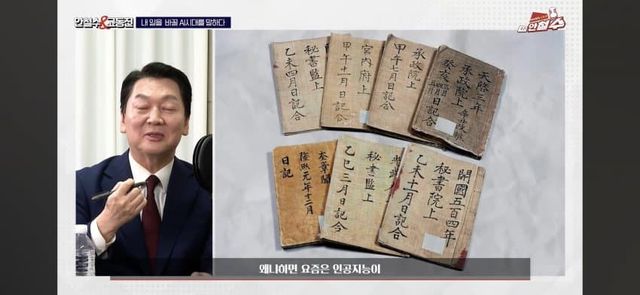 안철수&고동진
내 일을 바꿀 AI시대를 말하다
안철수
乙未四月日記合
秘書監上
甲午十一月日記合
宮內府上
甲午七月日記合
承政院上
天啓三年
承政院上
癸亥
日記合
隆熙元年十二月
日記
奎章閣
乙巳三月日記合
秘書監上
開國五百四年
秘書院上
乙未十一月日記合
왜냐하면 요즘은 인공지능이